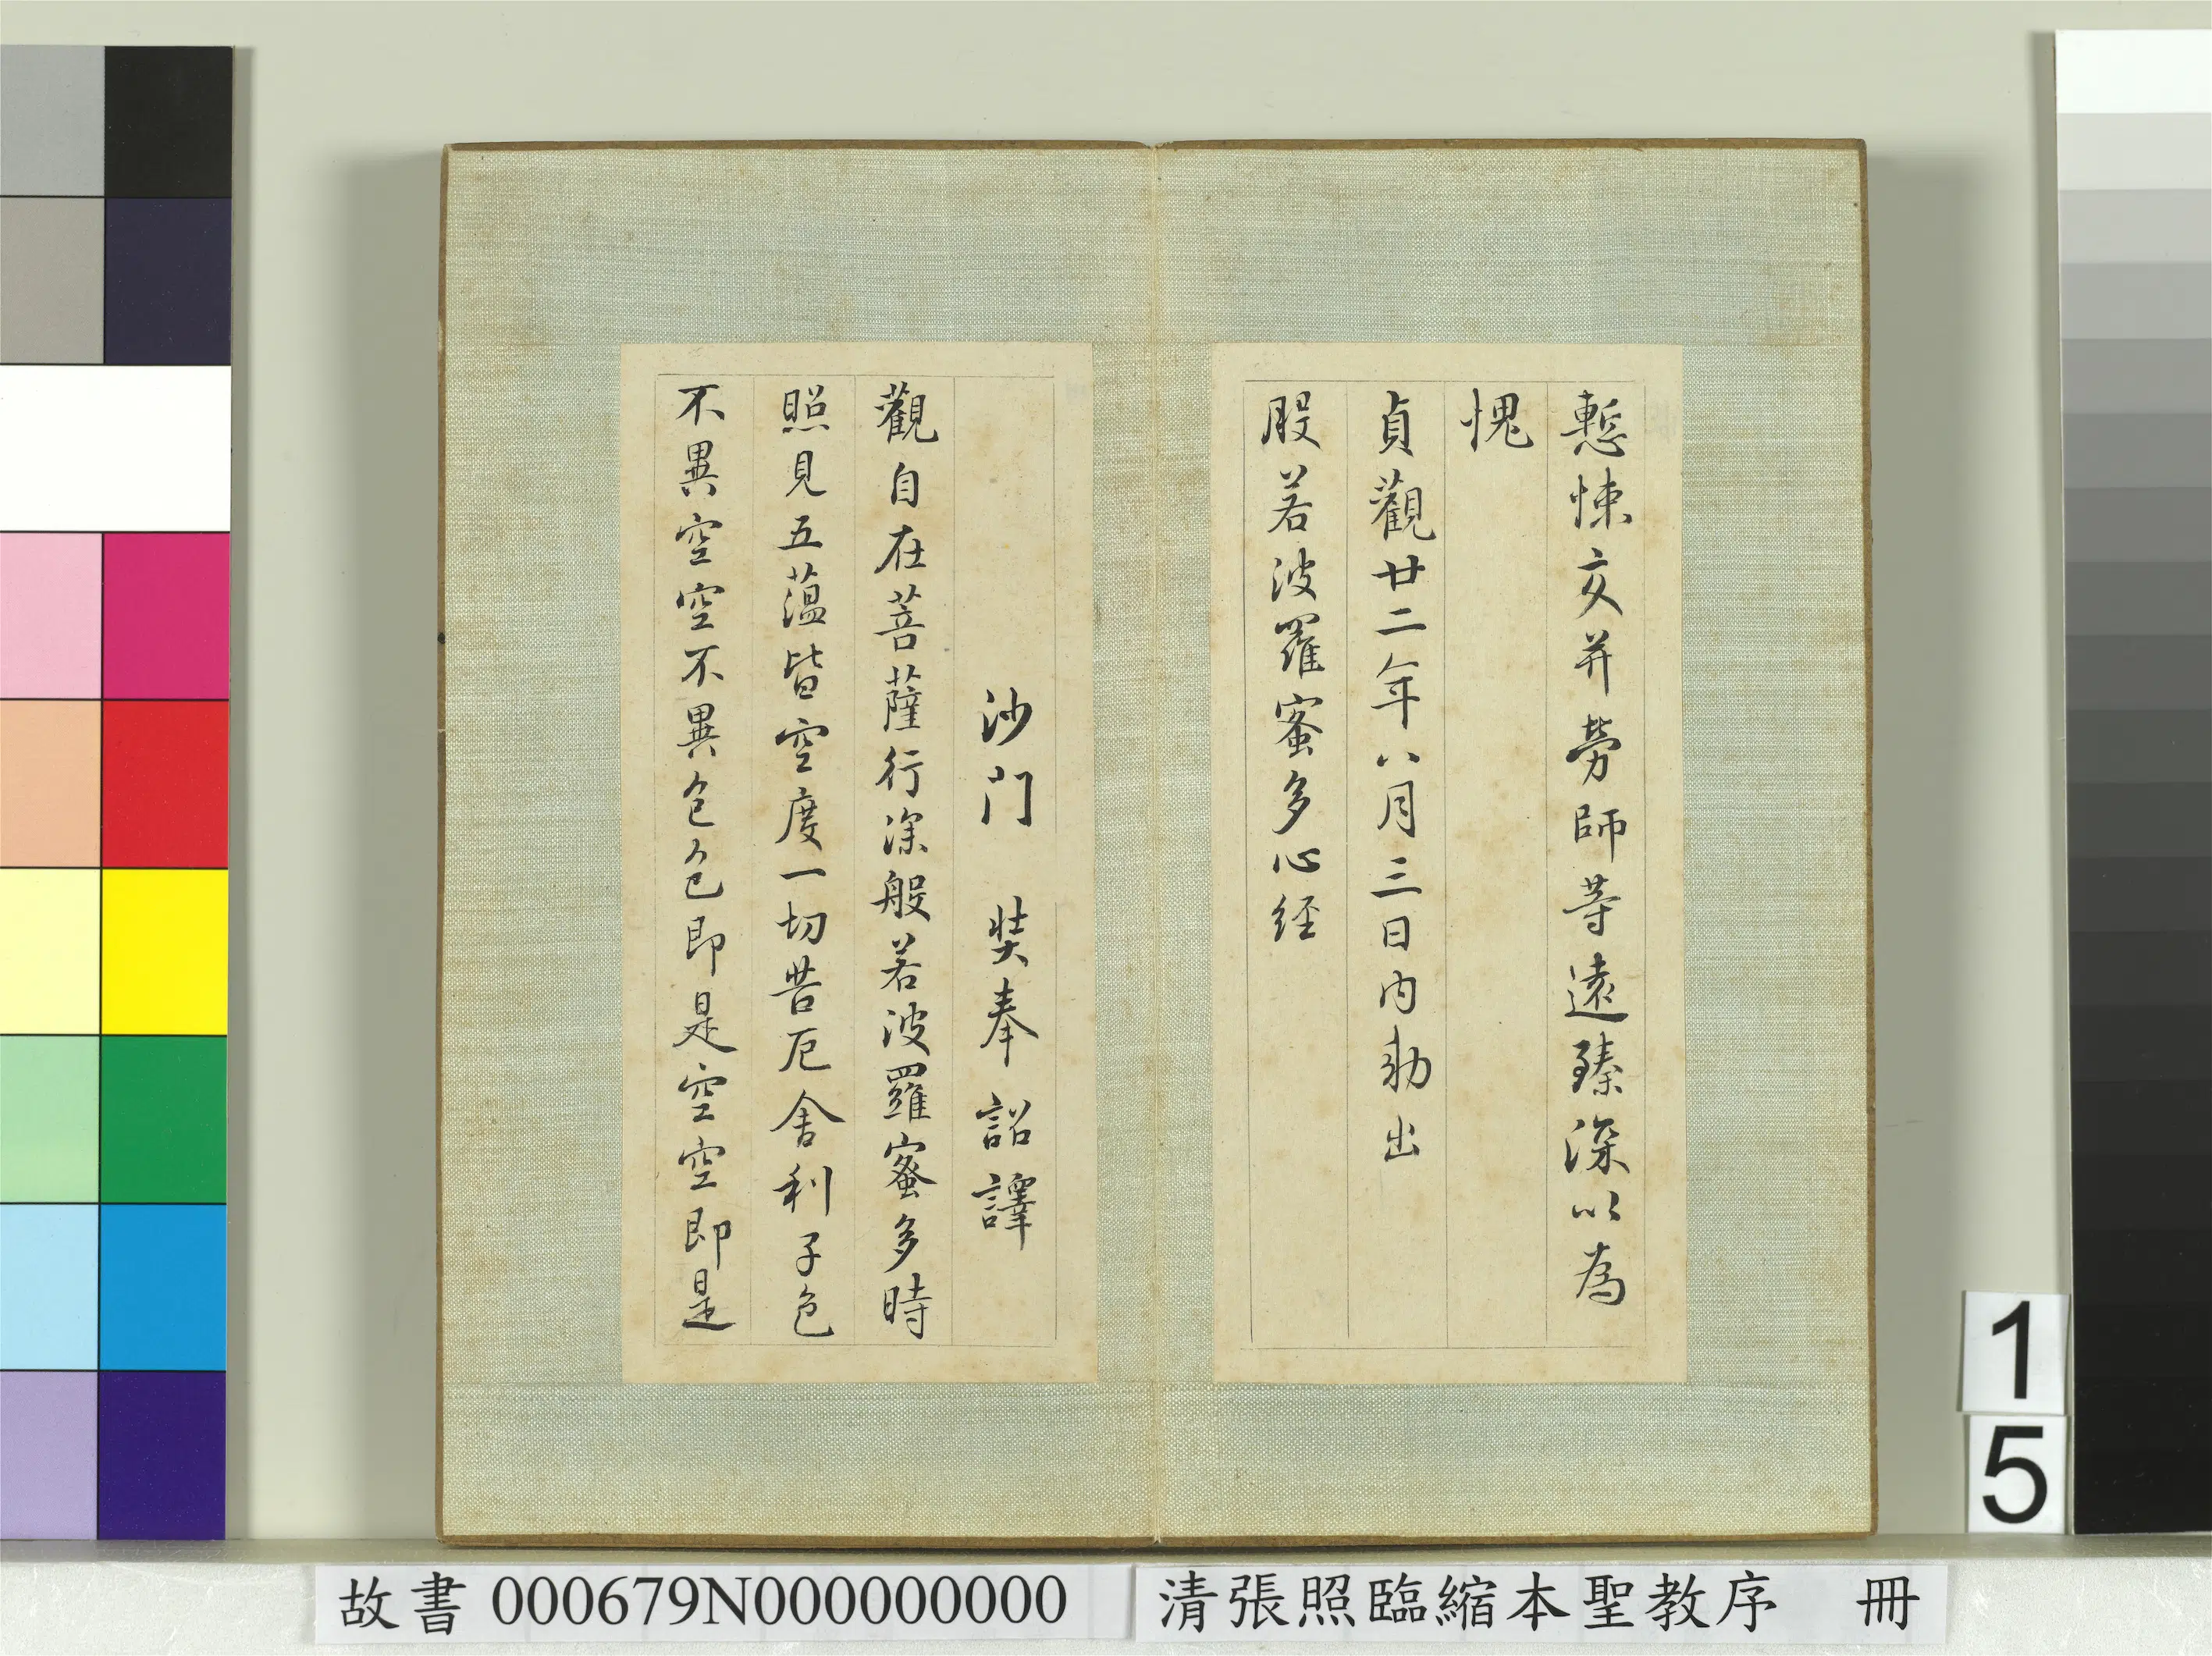 慙悚交并勞師等遠臻深以為
愧
貞觀廿二年八月三日內勑出
般若波羅蜜多心経
沙門 奘奉詔譯
觀自在菩薩行深般若波羅蜜多時
照見五蘊皆空度一切苦厄舍利子色
不異空空不異色色即是空空即是
1
5
故書 000679N000000000
清張照臨縮本聖教序 冊